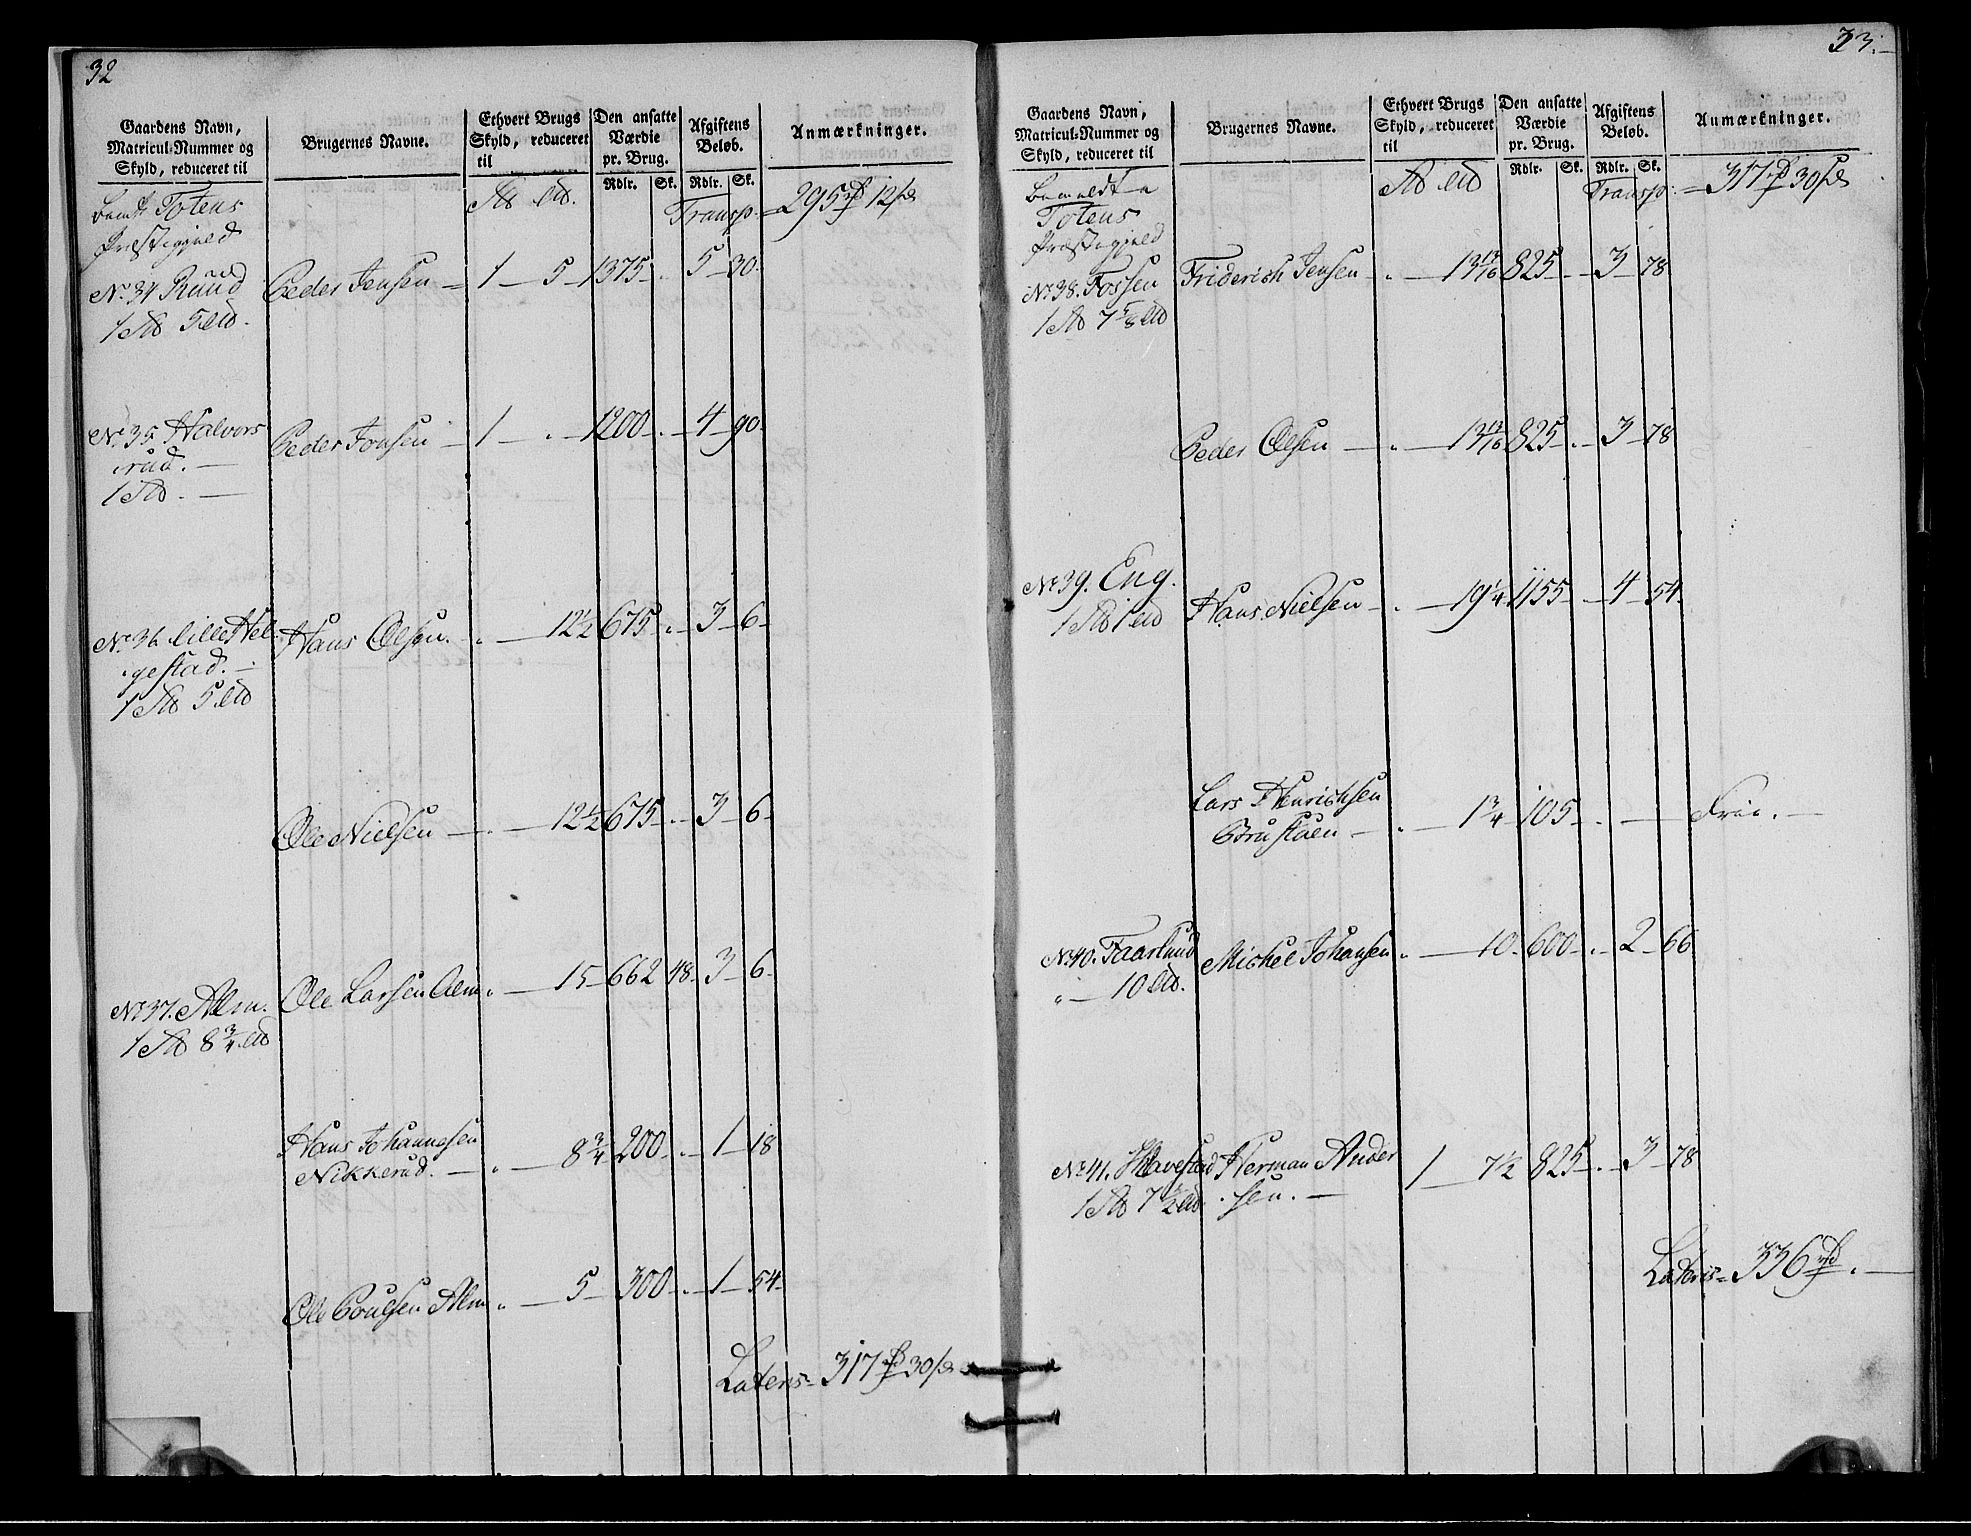 32
Gaardens Navn,
Matricul-Nummer og
Skyld, reduceret til
Brugernes Navne.
Ethvert Brugs
Skyld, reduceret
til
Den ansatte
Værdie
pr. Brug.
Rdlr. Sk.
Afgiftens
Beløb.
Rdlr. Sk.
Anmærkninger.
Totens
Præstegjeld
Transp. = 295 12
No. 34 Ruud Peder Jensen 1 5 1375 5 30
1 5
No. 35 Halvors Peder Jonsen 1 1200 4 90
rud.
1
No. 36 Lille Hel Hans Olsen 12½ 675 3 6
gestad.
1 5
Ole Nielsen 12½ 675 3 6
No. 37. Alm. Ole Larsen Alm 15 662 48 3 6
1 8¾
Hans Johannesen
Nikkerud. 8¾ 200 1 18
Ole Poulsen Alm 5 300 1 54
Lateris = 317 30
33.
Gaardens Navn,
Matricul-Nummer og
Skyld, reduceret til
Brugernes Navne.
Ethvert Brugs
Skyld, reduceret
til
Den ansatte
Værdie
pr. Brug.
Rdlr. Sk.
Afgiftens
Beløb.
Rdlr. Sk.
Anmærkninger.
Bemeldte
Totens
Præstegjeld
Transp. = 317 30
No. 38. Fossen Friderich Jensen 13 13/16 825 3 78
1 7⅝
Peder Olsen 13 13/16 825 3 78
No. 39. Eng. Hans Nielsen 19¼ 1155 4 54
1 1
Lars Henrichsen
Brustuen 1¾ 105 Frie.
No. 40. Faarlund Michel Johansen 10 600 2 66
10
No. 41. Herman Ander 1 7½ 825 3 78
1 7½ sen.
Lateris = 336